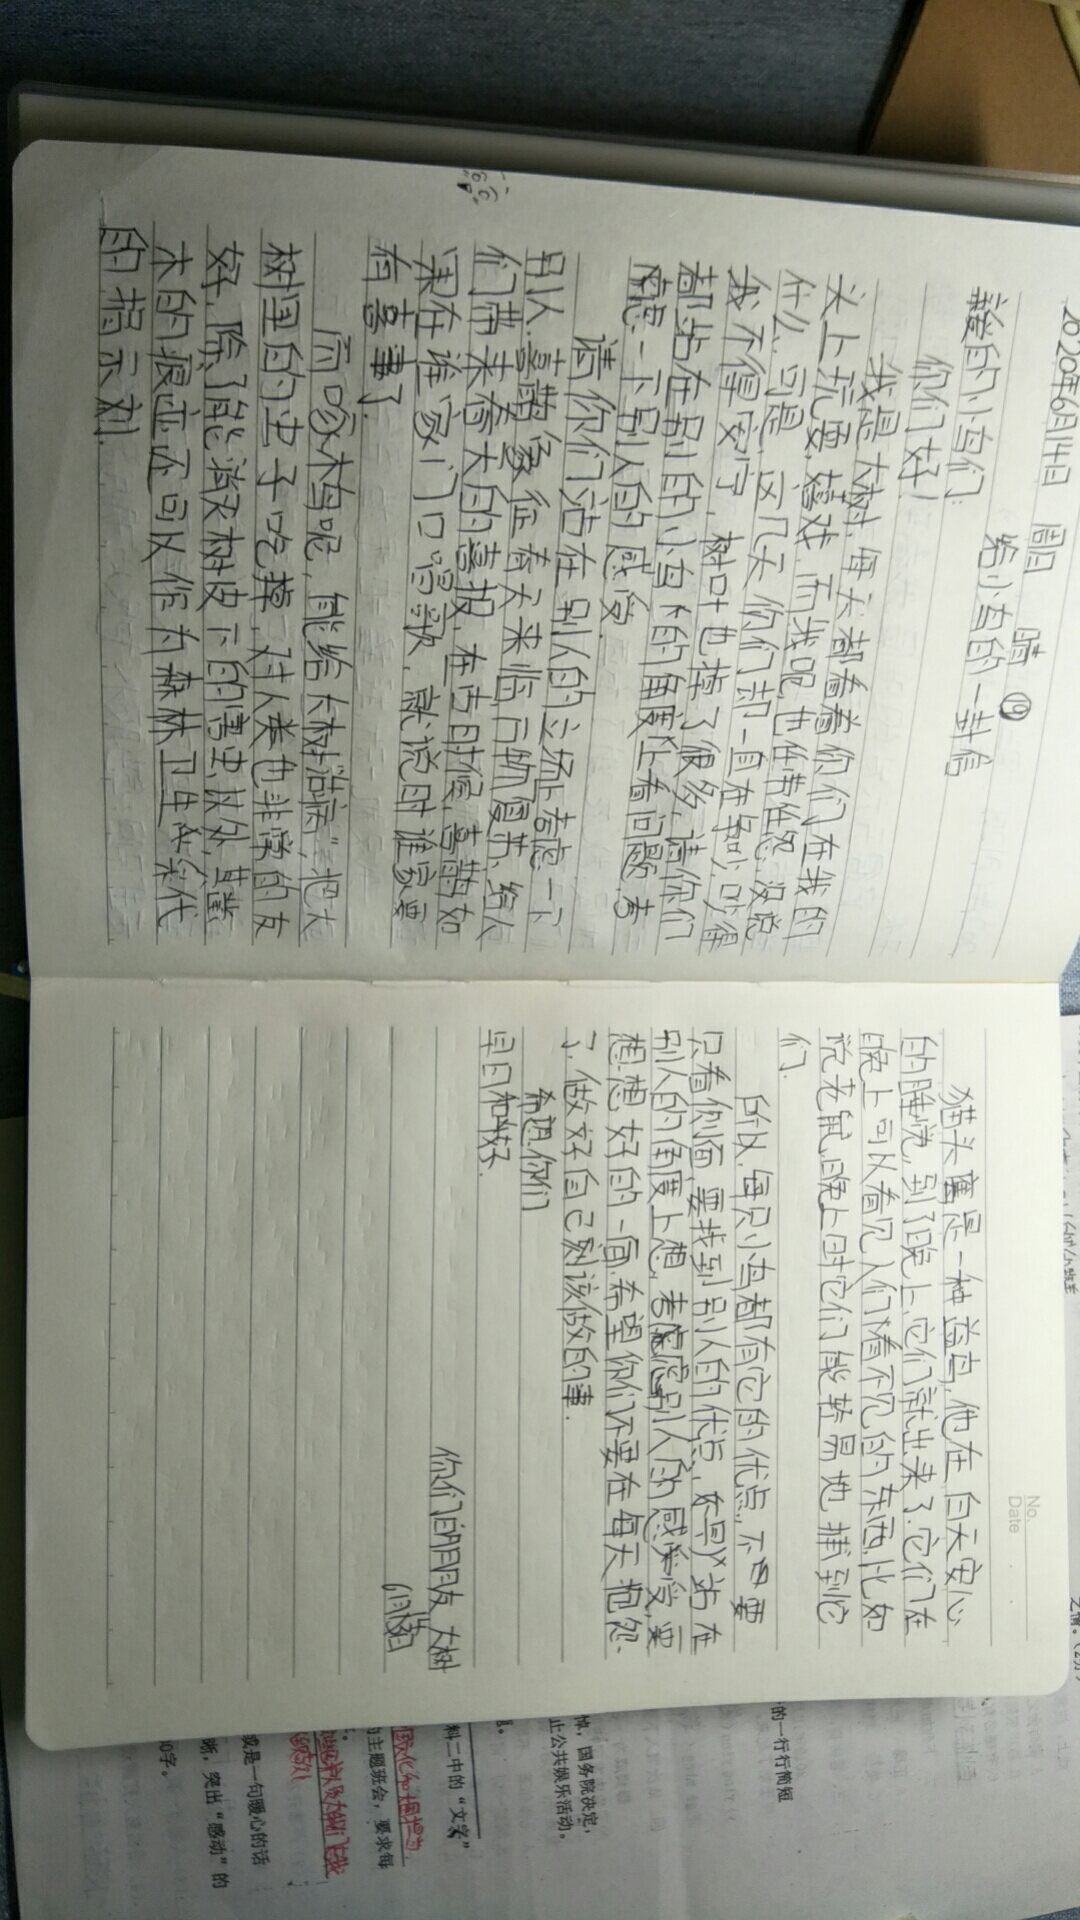 2020年6月14日 周日 晴 ⑲
给小鸟的一封信
亲爱的小鸟们:
你们好!
我是大树,每天都看着你们在我的
头上玩耍、嬉戏,而我呢,也任劳任怨,没说
什么,可是,这几天你们却一直在争吵,吵得
我不得安宁,树叶也掉了很多,请你们
都站在别的小鸟的角度上看问题,考
虑一下别人的感受.
请你们站在别人的立场上考虑一下
别人,喜鹊象征着天来临万物复苏,给人
们带来春天的喜报,在古时候,喜鹊如
果在谁家门口唱歌,就说明谁家要
有喜事了.
而啄木鸟呢,能给大树治病",把大
树里的虫子吃掉,对人类也非常的友
好,除了能消灭树皮下的害虫以外,其凿
木的痕迹还可以作为森林卫生采伐
的指示剂.
No.
Date
猫头鹰是一种益鸟,他在白天安心
的睡觉,到了晚上,它们就出来了.它们在
晚上可以看见人们看不见的东西,比如
说老鼠,晚上时它们能轻易地捕到它
们.
所以,每只小鸟都有它的优点,不只要
只看侧面,要找到别人的优点,站在
别人的角度上想,考虑别人的感受,要
想想好的一面.希望你们不要在每天抱怨
了,做好自己该做的事.
希望你们
早日和好.
你们的朋友 大树
6月14日
的一行行简短
悼,国务院决定,
止公共娱乐活动。
料二中的“文字”
主题班会,要求每
或是一句暖心的话
晰,突出“感动”的
0字。